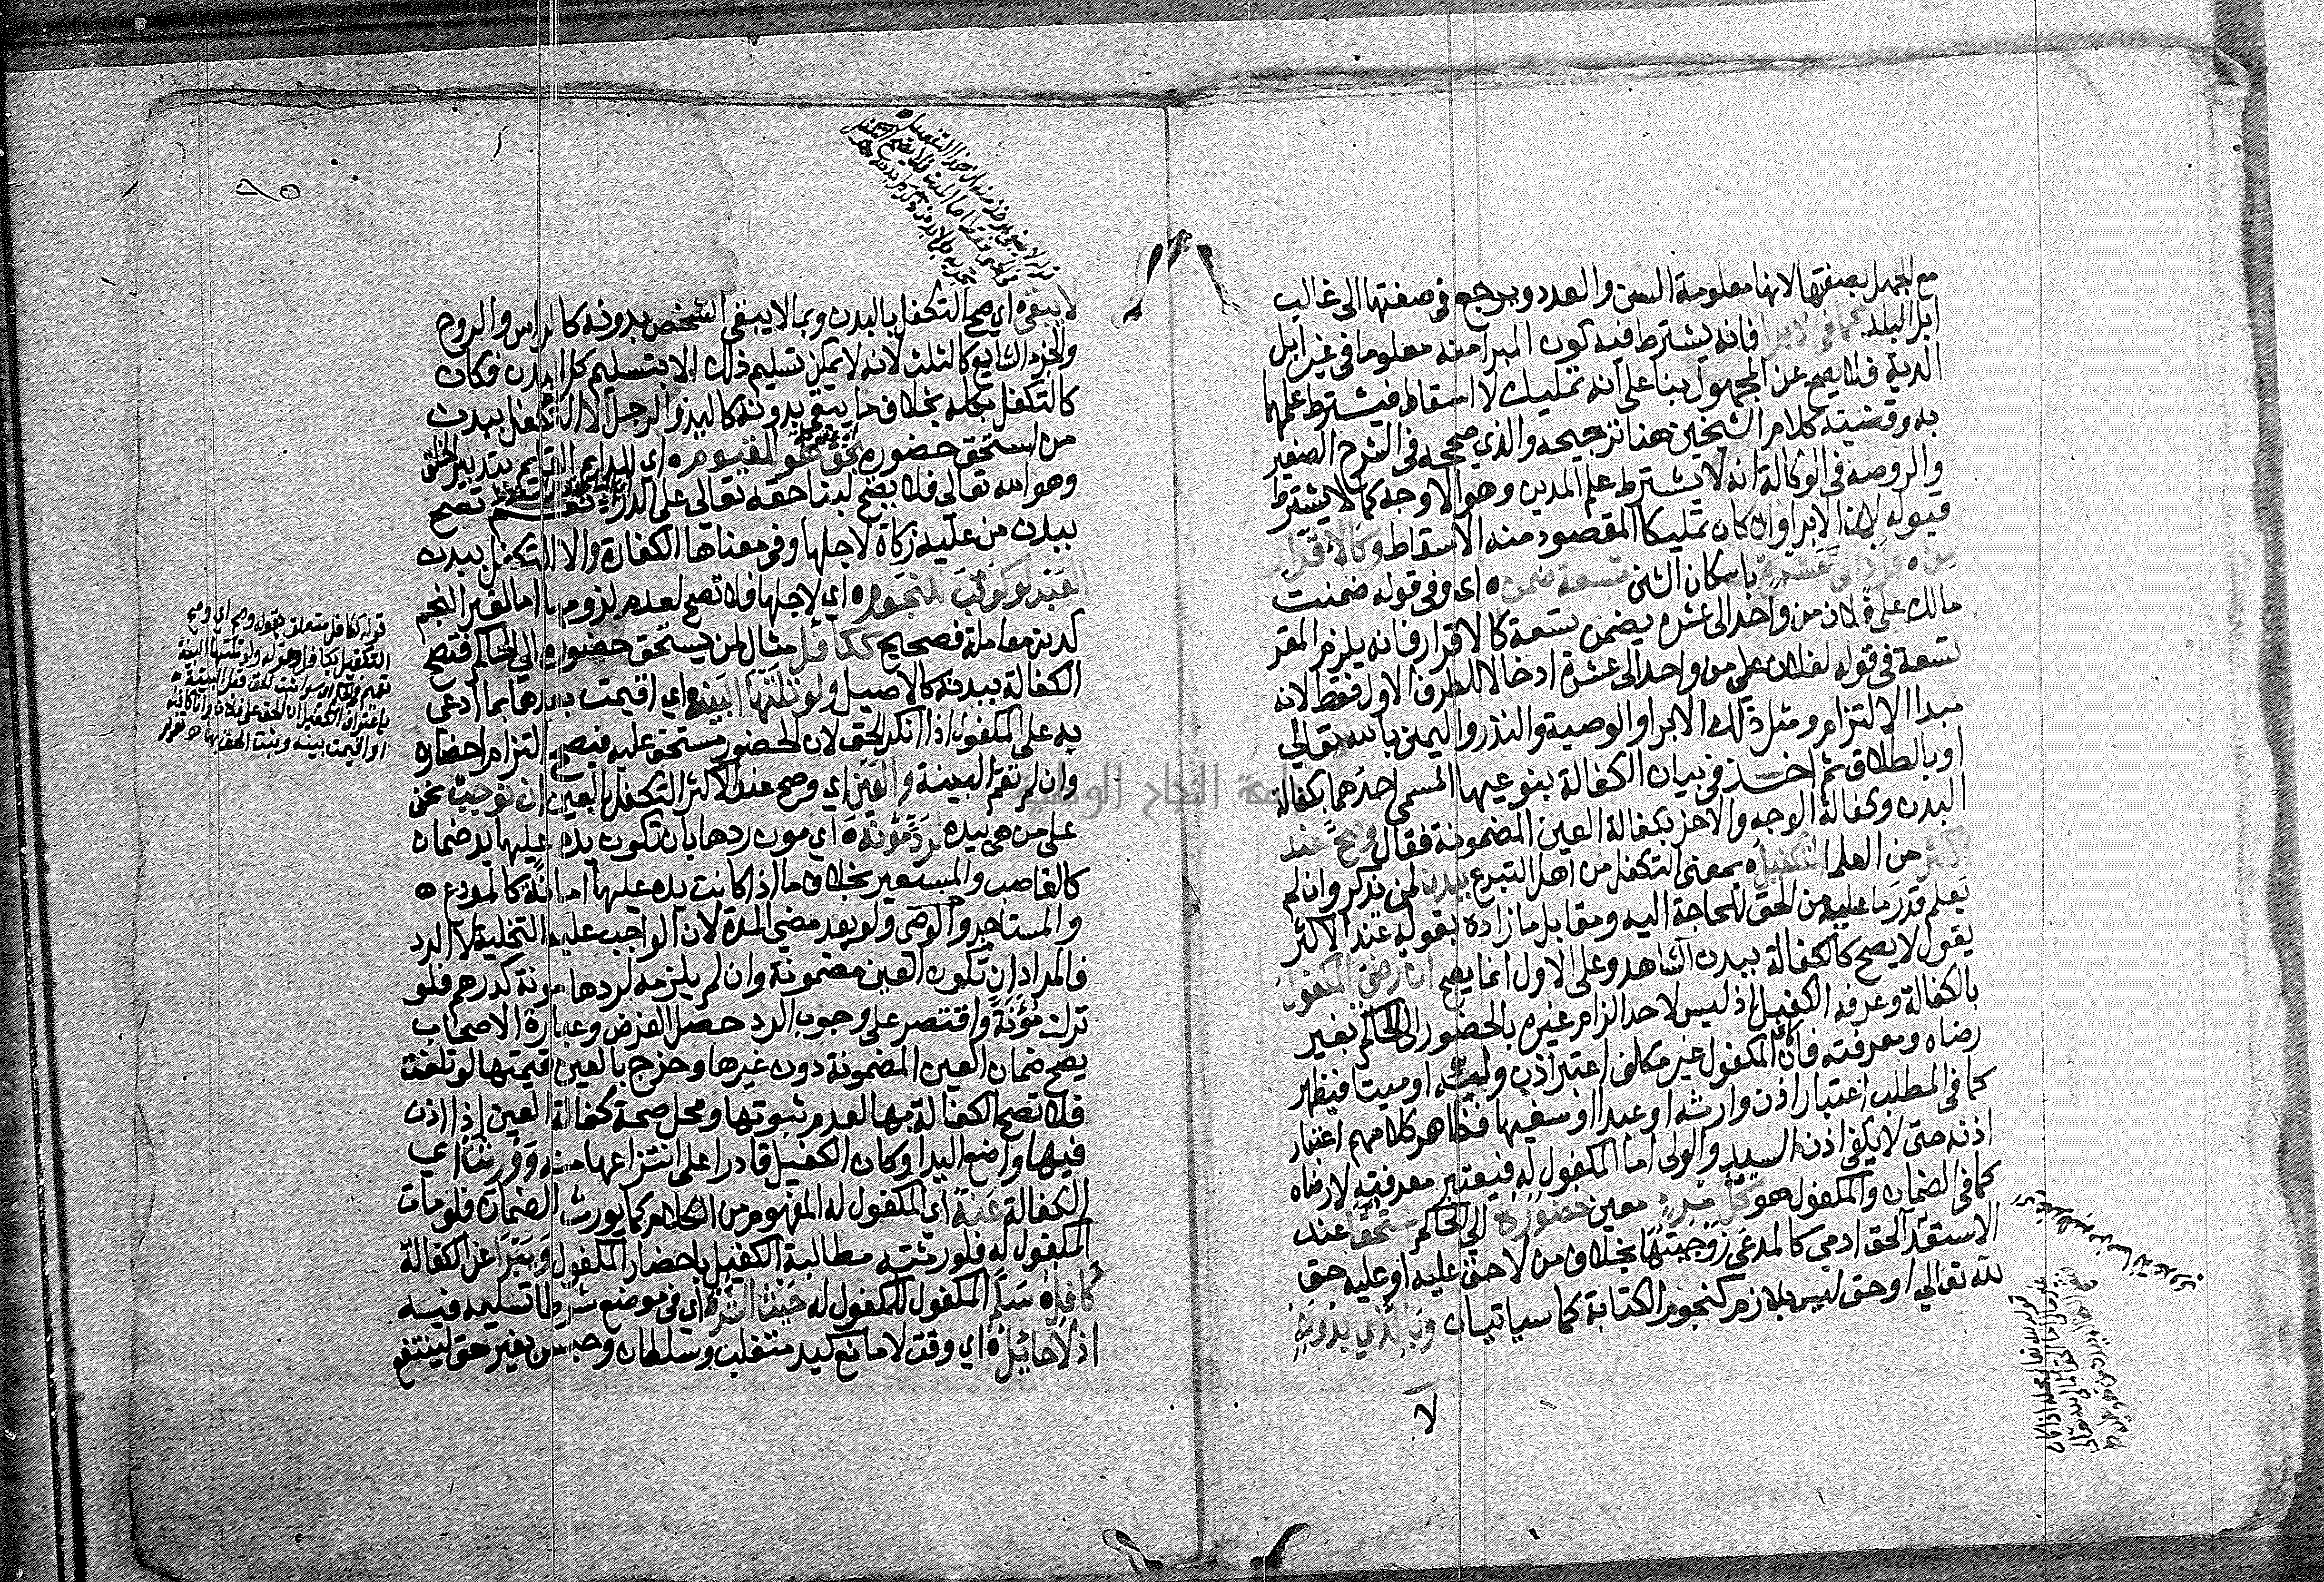 مع الجهل بصفتها لانها معلومة السن والعدد ويرجع في صفتها الى غالب
ابل البلد كما في لابرا فانه يشترط فيه كون المبرا منه معلوما في غير ابل
الدية فلا يصح عن المجهول بنا على انه تمليك لا اسقاط فيشترط علمهما
به وقضيته كلام الشيخين هنا ترجيحه والذي صححه في الشرح الصغير
والروضه في الوكالة انه لا يشترط علم المدين وهو الاوجه كما لا يشترط
قبوله لان الابرا وان كان تمليكا المقصود منه الاسقاط وكالاقرار
من فرد الى عشرة باسكان الشين تسعة ضمن اي وفي قوله ضمنت
مالك على فلان من واحد الى عشره يضمن تسعة كالاقرار فانه يلزم المقر
تسعة في قوله لفلان علي من واحد الى عشرة ادخالا للطرف الاول فقط لانه
مبدا الالتزام ومثل ذلك الابرا والوصية والنذر واليمين بالله تعالى
او بالطلاق ثم اخذ في بيان الكفالة بنوعيها المسمى احدهما بكفالة
البدن وكفالة الوجه والاخر بكفالة العين المضمونة فقال وصح عند
الاكثر من العلما التكفيل بمعنى التكفل من اهل التبرع ببدن لمن نذكر وان لم
يعلم قدر ما عليه من الحق للحاجة اليه ومقابل ما زاده بقوله عند الاكثر
يقول لا يصح كالكفالة ببدن الشاهد وعلى الاول انما يصح ان رضى المكفول
بالكفالة وعرفه الكفيل اذ ليس لاحد الزام غيره بالحضور الى الحاكم بغير
رضاه ومعرفته فان كان المكفول غير مكلف اعتبر اذن وليه او ميتا فيظهر
كما في المطلب اعتبار اذن وارثه او عبدا او سفيها فظاهر كلامهم اعتبار
اذنه حتى لا يكفي اذن السيد والولى اما المكفول له فيعتبر معرفته لا رضاه
كما في الضمان والمكفول هو كل معين حضوره الى الحاكم مستحقا عند
الاستعدا لحق ادمي كالمدعى زوجيتها بخلاف من لا حق عليه او عليه حق
لله تعالى او حق ليس بلازم كنجوم الكتابة كما سياتيان وبالذي بدونه
لا
لا يبقى اي صح التكفل بالبدن وبما لا يبقى الشخص بدونه كالراس والروح
والجزء الشايع كالثلث لانه لا يمكن تسليم ذلك الا بتسليم كل البدن فكان
كالتكفل بكله بخلاف ما يبقى بدونه كاليد والرجل لا التكفل ببدن
من استحق حضوره بحق القيوم اي الدايم القايم بتدبير الخلق
وهو الله تعالى فلا يصح لبنا حقه تعالى على الدر تصح
ببدن من عليه زكاة لاجلها وفي معناها الكفارة والا التكفل ببدن
العبد لو كوتب للنجوم اي لاجلها فلا تصح لعدم لزومها اما لغير النجم
كدين معاملة فصحيح ككافل مثال لمن يستحق حضوره الى الحاكم فتصح
الكفالة ببدنه كالاصيل ولو تلتها البينه اي اقيمت بعدها بما ادعى
به على المكفول اذا انكر الحق لان الحضور مستحق عليه فيصح التزام احضاره
وان لم تقم البينة والعين اي وصح عند الاكثر التكفل بالعين ان توجبت نحن
على من هي بيده لرد مؤنة اي مون ردها بان تكون يده عليها يد ضمان
كالغاصب والمستعير بخلاف ما اذا كانت يده عليها امانة كالمودع
والمستاجر والوصي ولو بعد مضي المدة لان الواجب عليه التخلية لا الرد
فالمراد ان تكون العين مضمونة وان لم يلزمه لردها مونة كدرهم فلو
ترك مؤنة واقتصر على وجوب الرد حصل الغرض وعبارة الاصحاب
يصح ضمان العين المضمونة دون غيرها وخرج بالعين قيمتها لو تلفت
فلا تصح الكفالة بها لعدم ثبوتها ومحل صحة كفالة العين اذا اذن
فيها واضع اليد او كان الكفيل قادرا على انتزاعها منه وورثت اي
الكفالة عنه اي المكفول له المفهوم من الكلام كما يورث الضمان فلو مات
المكفول له فلورثته مطالبة الكفيل باحضار المكفول ويبرا عن الكفالة
كافله سلم المكفول للمكفول له حيث الشرط اي في موضع شرطا تسليمه فيه
اذ لا حائل اي وقت لا مانع كيد متغلب وسلطان وحبس بغير حق لينتفع
قوله ككافل متعلق بقوله وصح اي وصح